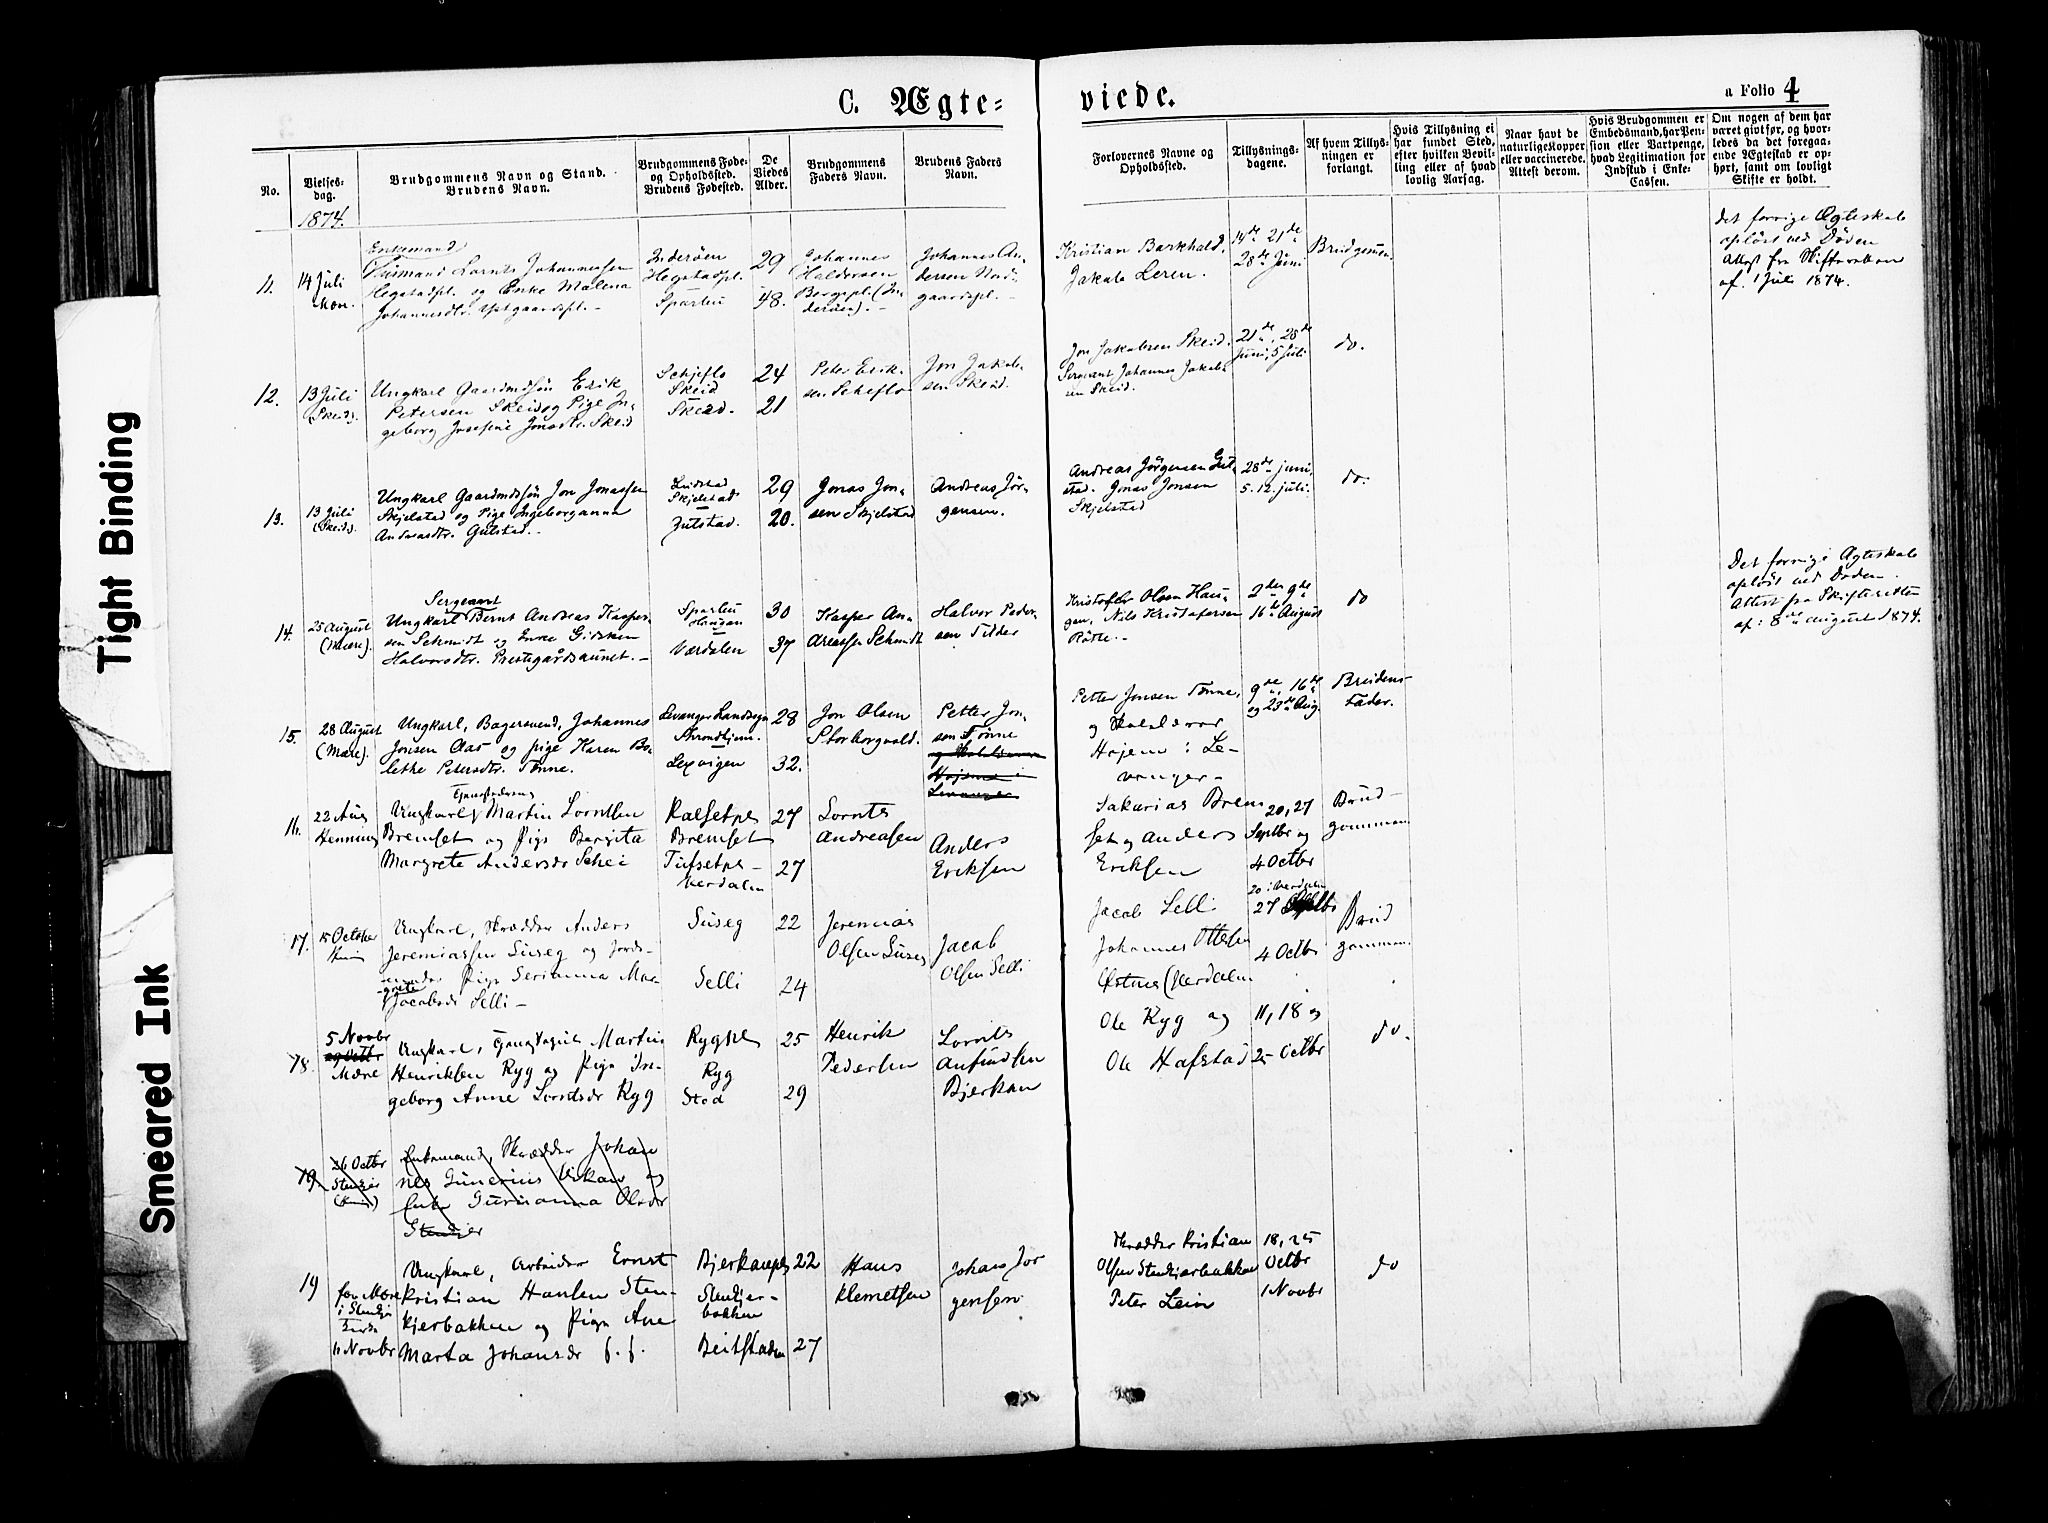 Tight Binding
Smeared Ink
C. Ægte=
viede.
a Folio 4
No.
Vielses-
dag.
Brudgommens Navn og Stand.
Brudens Navn.
Brudgommens Føde-
og Opholdssted.
Brudens Fødested.
De
Viedes
Alder.
Brudgommens
Faders Navn.
Brudens Faders
Navn.
Forlovernes Navne og
Opholdssted.
Tillysnings-
dagene.
Af hvem Tillys-
ningen er
forlangt.
Hvis Tillysning ei
har fundet Sted,
efter hvilken Bevil-
ling eller af hvad
lovlig Aarsag.
Naar havt de
naturlige Kopper
eller vaccinerede.
Attest derom.
Hvis Brudgommen er
Embedsmand, har Pen-
sion eller Vartpenge,
hvad Legitimation for
Indskud i Enke-
Cassen.
Om nogen af dem har
været gift før, og hvor-
ledes da det foregaa-
ende Ægteskab er op-
hørt, samt om lovligt
Skifte er holdt.
1874.
11.
14 Juli
Enkemand
Husmand Lornts Johannessen
Hegstadpl. og Enke Malena
Johannesdtr.
Inderøen
Hegstadpl.
Sparbu
29
48.
Johannes
Haldorsen
Bergspl. (In-
derøen).
Johannes An-
dersen Nord-
gaardspl.
Kristian Barkhald.
Jakob Leren.
14de 21de
28de Juni
Brudgomen.
Det forrige Ægteskab
opløst ved Døden
Attest fra Skifteretten
af 1 Juli 1874.
12.
13 Juli
(Skeid).
Ungkarl Gaardmdsøn Erik
Petersen Skeid og Pige In-
geborg Josefine Jonsdtr. Skeid
Schjeflo
Skeid
Skeid.
24
21
Peter Erik-
sen Scheflo
Jon Jakob-
sen Skeid.
Jon Jakobsen Skeid.
Sergeant Johannes Jakob-
sen Skeid.
21de, 28de
Juni, 5 Juli
do.
13.
13 Juli
(Skeid).
Ungkarl Gaardmdsøn Jon Jonassen
Skjelstad og Pige Ingeborganna
Andreasdtr. Gulstad.
Skjelstad
Gulstad.
29
20.
Jonas Jon-
sen Skjelstad
Andreas Jør-
gensen.
Andreas Jørgensen Gul-
stad. Jonas Jonsen
Skjelstad
28de juni,
5. 12. juli.
do.
14.
25 August
(Mære).
Sergeant
Ungkarl Bernt Andreas Kasper-
sen Schmidt og Enke Gidsken
Halvorsdtr. Prestegårdsaunet.
Sparbu
Haugan
Værdalen
30
37
Kasper An-
dreassen Schmidt
Halvor Peder-
sen Tilder
Kristoffer Olsen Hau-
gan, Nils Kristofersen
2den 9de
16de August
do
Det forrige Ægteskab
opløst ved Døden.
Attest fra Skifteretten
af: 8de August 1874.
15.
28 August
(Mære).
Ungkarl, Bagersvend, Johannes
Jonsen Aas og pige Karen Bo-
lethe Petersdtr. Tønne.
Levanger Landsogn
Strondhjem.
Lexvigen
28
32.
Jon Olsen
Storborgvald.
Petter Jon-
sen Tønne
Petter Jonsen Tønne,
og
Hojem i Le-
vanger
9de, 16de
og 23de Aug.
Brudens
Fader.
16.
22 Aug
Henning
Ungkarl Martin Lorntsen
Bremset og Pige Bergita
Margrete Andersdr Schei
Kalsetpl
Bremset
Tufsetpl
Verdalen
27
27
Lornts
Andreasen
Anders
Eriksen
Sakarias Brem
set og Anders
Eriksen
20, 27
Septbr og
4 Octbr
Brud-
gommen
17.
15 October
Ungkarl, Skrædder Anders
Jeremiassen Suseg og Jord-
Pige Serianna Mar-
grete
Jacobsdr Selli
Suseg
Selli
22
24
Jeremias
Olsen Suseg
Jacob
Olsen Selli
Jacob Selli
Johannes Ottesen
Østnes (Verdalen
20 i Verdalen
27 Septbr
4 Octbr
Brud
gommen.
18.
5 Novbr
Mære
Ungkarl, Martin
Henriksen Ryg og Pige In-
geborg Anne Lorntsdr Ryg
Rygpl
Ryg
Stod
25
29
Henrik
Pedersen
Lornts
Anfindsen
Bjerkan
Ole Ryg og
Ole Hafstad
11, 18 og
25 Octbr
do.
19.
26 Octbr
Stenkjer
Enkemand, Skrædder Johan
nes Gunerius Vikan og
Enke Gurianna Olsdr
Stenkjer
19
for Mære
i Stenkjer
Kirke
11 Novbr
Ungkarl, Arbeider Ernst
Kristian Hansen Sten-
kjerbakken og Pige Ane
Marta Johansdr f. f.
Bjerkanpl
Stenkjer-
bakken
Beitstaden
22
27
Hans
Klemetsen
Johans Jør
gensen
Skrædder Kristian
Olsen Stenkjerbakken
Peter Lein
18, 25
Octbr
1 Novbr
do